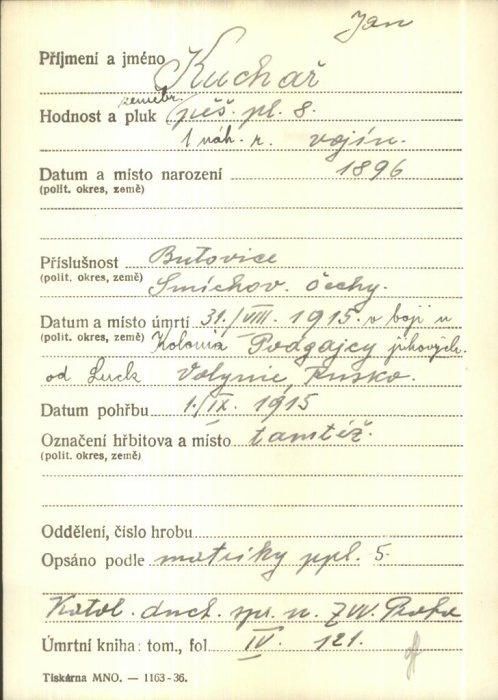 Jan
Příjmení a jméno Kuchař
zeměbr.
Hodnost a pluk pěš. pl. 8.
1 náh. r. vojín.
Datum a místo narození 1896
(polit. okres, země)
Příslušnost Butovice
(polit. okres, země) Smíchov. Čechy.
Datum a místo úmrtí 31./VIII. 1915. v boji u
(polit. okres, země) Kolonia Podgajcy jihových.
od Luck Volynie, Rusko.
Datum pohřbu 1./IX. 1915
Označení hřbitova a místo tamtéž.
(polit. okres, země)
Oddělení, číslo hrobu
Opsáno podle matriky ppl. 5.
Katol. duch. spr. n. ZVV. Praha
Úmrtní kniha: tom., fol. IV. 121.
Tiskárna MNO. — 1163-36.